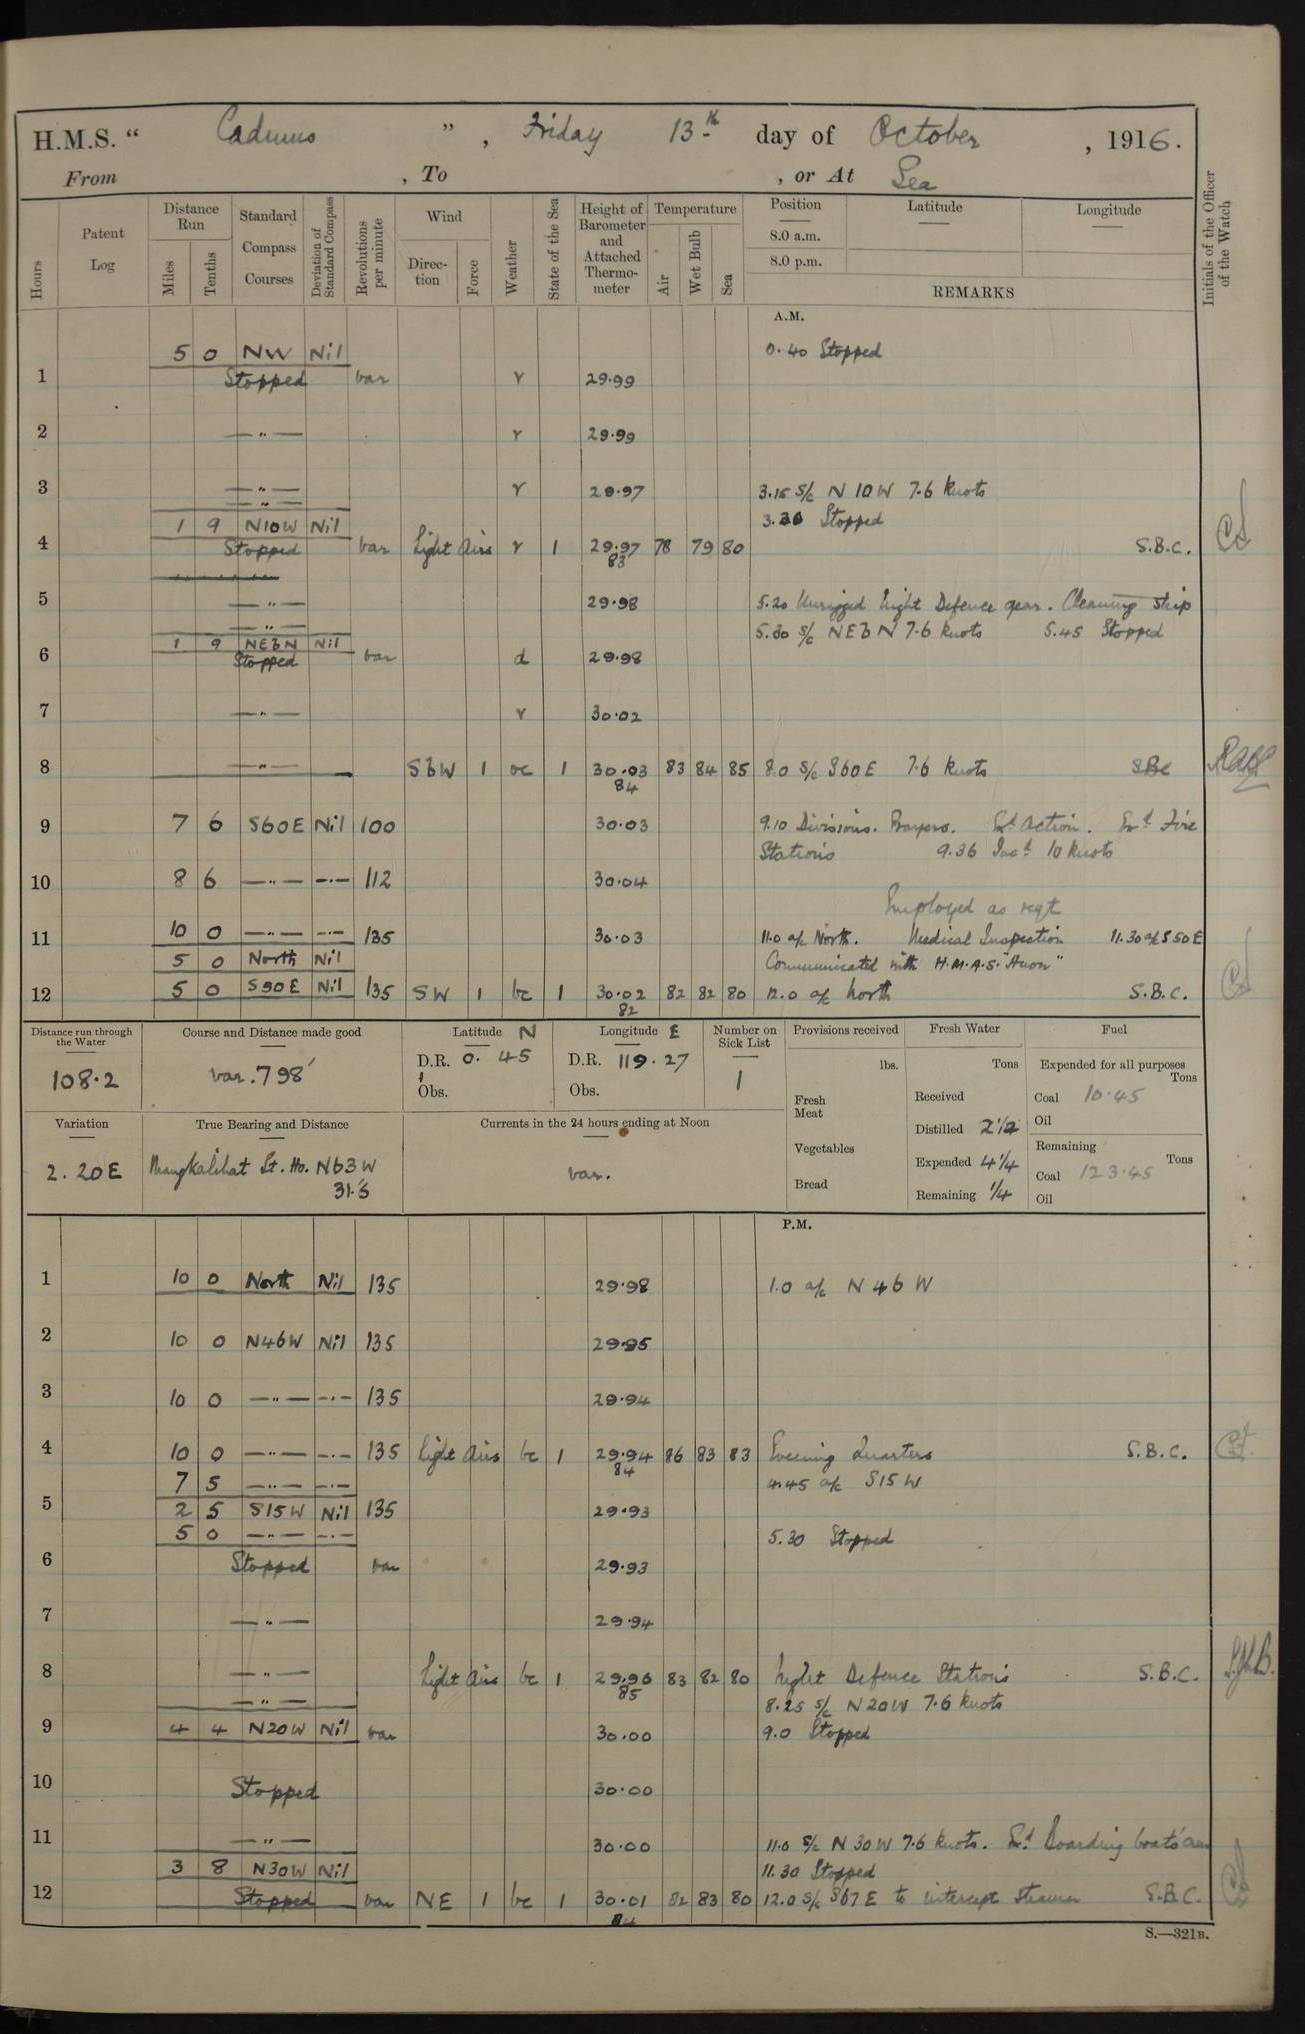 H.M.S. " Cadmus ", Friday 13th day of October, 1916.
From , To , or At Sea
Hours
Patent Log
Distance Run
Miles
Tenths
Standard Compass Courses
Deviation of Standard Compass
Revolutions per minute
Wind
Direction
Force
Weather
State of the Sea
Height of Barometer and Attached Thermometer
Temperature
Air
Wet Bulb
Sea
Position
8.0 a.m.
8.0 p.m.
Latitude
Longitude
REMARKS
Initials of the Officer of the Watch
A.M.
5 0 NW Nil 0.40 Stopped
1 Stopped var r 29.99
2 — " — r 29.99
3 — " — r 29.97 3.15 S/c N 10 W 7.6 knots
— " — 3.30 Stopped
1 9 N10W Nil
4 Stopped var Light Airs r 1 29.97 78 79 80 S.B.C.
83
5 — " — 29.98 5.20 Unrigged Night Defence gear. Cleaning Ship
— " — 5.30 S/c NEbN 7.6 knots 5.45 Stopped
1 9 NEbN Nil
6 Stopped var d 29.98
7 — " — r 30.02
8 — " — SbW 1 oc 1 30.03 83 84 85 8.0 S/c S60E 7.6 knots SBC
84
9 7 6 S60E Nil 100 30.03 9.10 Divisions. Prayers. Exd Action. Exd Fire
Stations 9.36 Incd 10 knots
10 8 6 — " — — " — 112 30.04
Employed as reqt
11 10 0 — " — — " — 135 30.03 11.0 a/c North. Medical Inspection 11.30 a/c S50E
5 0 North Nil Communicated with H.M.A.S. "Huon"
12 5 0 S50E Nil 135 SW 1 bc 1 30.02 82 82 80 12.0 a/c North S.B.C.
82
Distance run through the Water
108.2
Course and Distance made good
var. 798'
Latitude N
D.R. 0. 45
Obs.
Longitude E
D.R. 119.27
Obs.
Number on Sick List
1
Provisions received
lbs.
Fresh Meat
Vegetables
Bread
Fresh Water
Tons
Received
Distilled 2 1/2
Expended 4 1/4
Remaining 1/4
Fuel
Expended for all purposes
Tons
Coal 10.45
Oil
Remaining
Tons
Coal 123.45
Oil
Variation
2.20E
True Bearing and Distance
Mangkalihat Lt. Ho. N63W
31.5
Currents in the 24 hours ending at Noon
var.
P.M.
1 10 0 North Nil 135 29.98 1.0 a/c N 46 W
2 10 0 N46W Nil 135 29.95
3 10 0 — " — — " — 135 29.94
4 10 0 — " — — " — 135 Light Airs bc 1 29.94 86 83 83 Evening Quarters S.B.C.
84
7 5 — " — — " — 4.45 a/c S15W
5 2 5 S15W Nil 135 29.93
5 0 — " — — " — 5.30 Stopped
6 Stopped var 29.93
7 — " — 29.94
8 — " — Light Airs bc 1 29.96 83 82 80 Night Defence Stations S.B.C.
85
— " — 8.25 S/c N20W 7.6 knots
9 4 4 N20W Nil var 30.00 9.0 Stopped
10 Stopped 30.00
11 — " — 30.00 11.0 S/c N 30 W 7.6 knots. Exd Boarding boats
3 8 N30W Nil 11.30 Stopped
12 Stopped var NE 1 bc 1 30.01 82 83 80 12.0 S/c S67E to intercept Steamer S.B.C.
84
S.—321B.